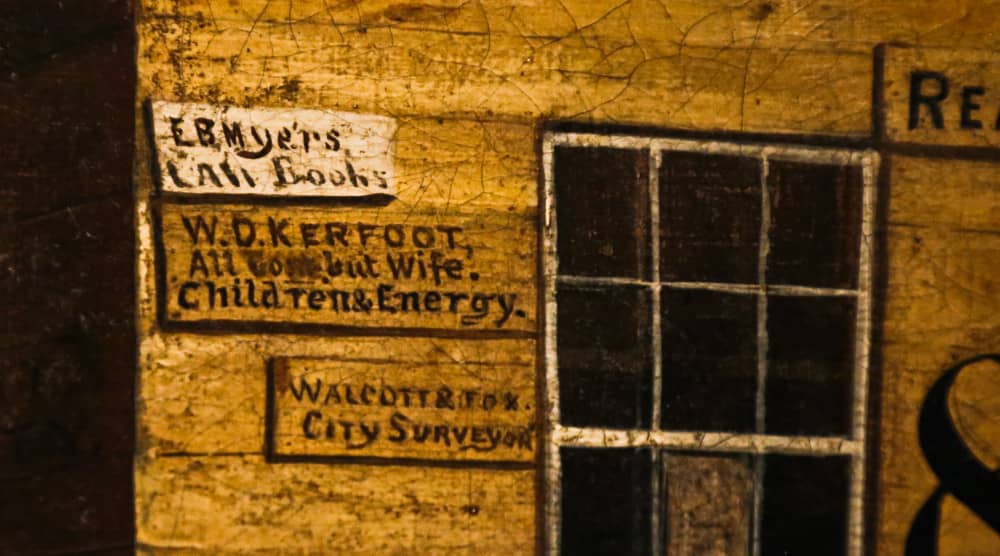 E B Myers
LAW Books
W.D. KERFOOT,
All but Wife.
Children & Energy.
WALCOTT & FOX.
CITY SURVEYOR
RE
&